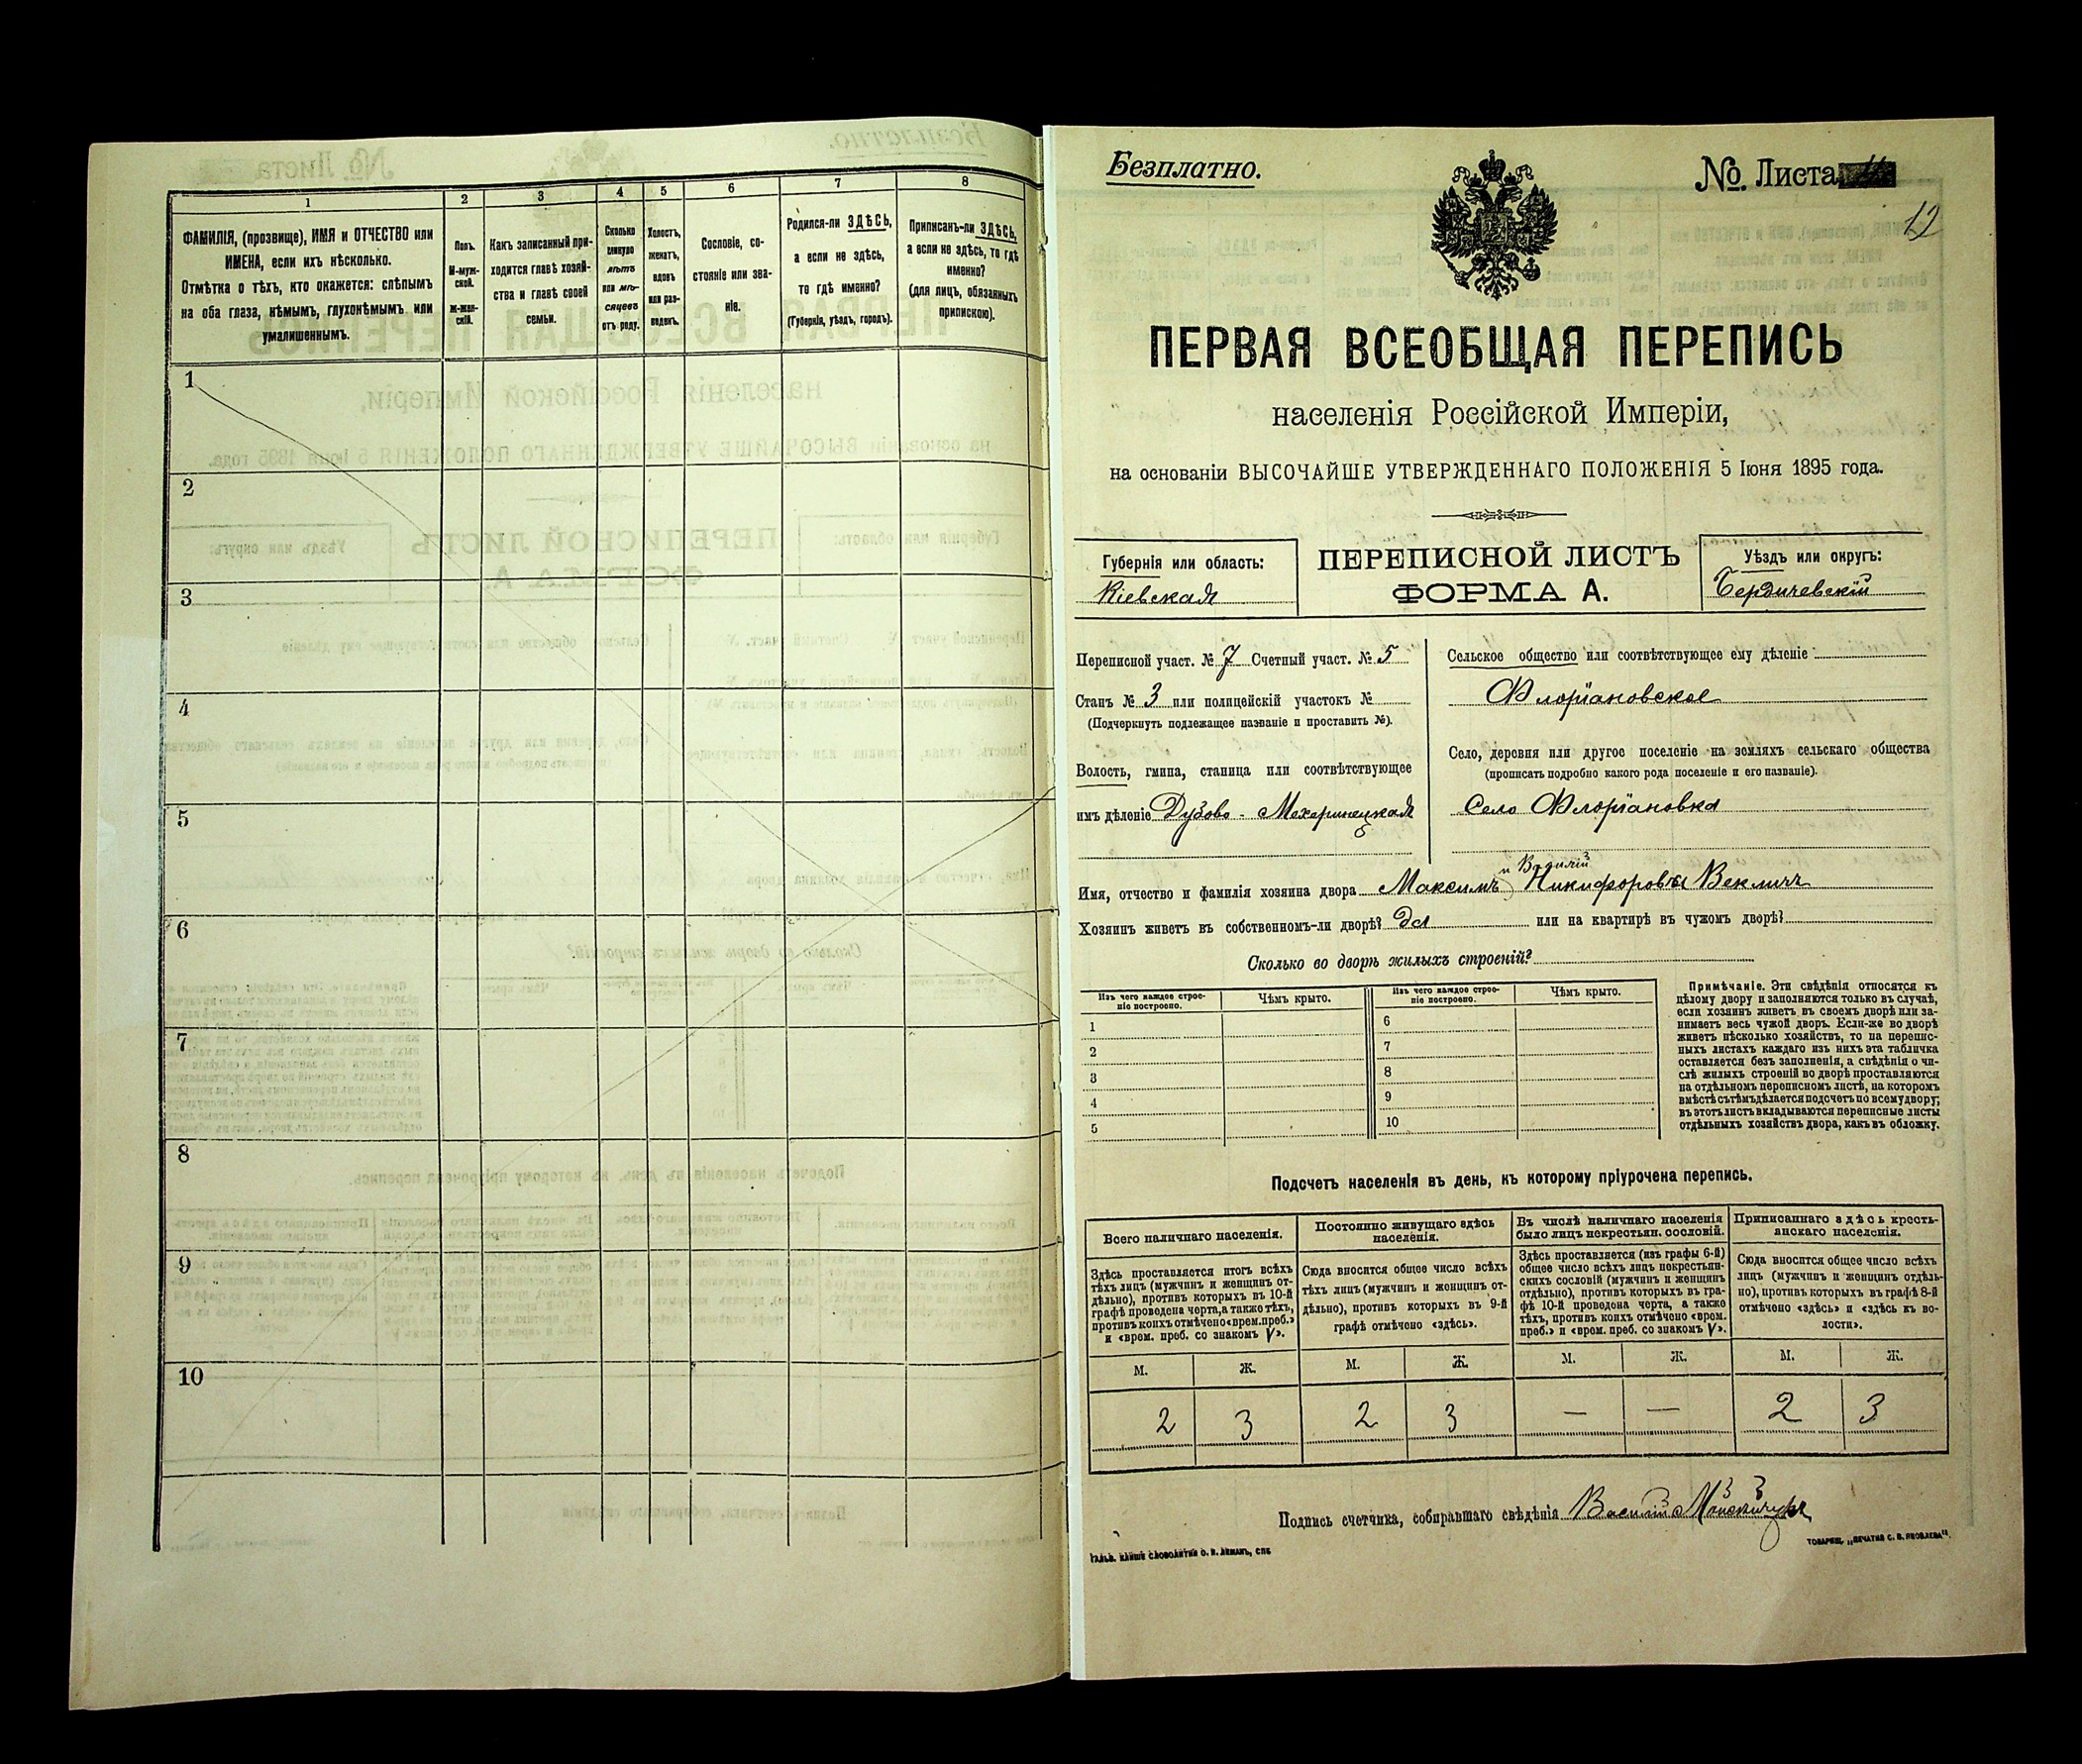 1 2 3 4 5 6 7 8
ФАМИЛІЯ, (прозвище), ИМЯ и ОТЧЕСТВО или
ИМЕНА, если ихъ нѣсколько.
Отмѣтка о тѣхъ, кто окажется: слѣпымъ
на оба глаза, нѣмымъ, глухонѣмымъ или
умалишеннымъ.
Полъ.
М-муж-
ской.
Ж-жен-
скій.
Какъ записанный при-
ходится главѣ хозяй-
ства и главѣ своей
семьи.
Сколько
минуло
лѣтъ
или мѣ-
сяцевъ
отъ роду.
Холостъ,
женатъ,
вдовъ
или раз-
веденъ.
Сословіе, со-
стояніе или зва-
ніе.
Родился-ли ЗДѢСЬ,
а если не здѣсь,
то гдѣ именно?
(Губернія, уѣздъ, городъ).
Приписанъ-ли ЗДѢСЬ,
а если не здѣсь, то гдѣ
именно?
(для лицъ, обязанныхъ
припискою).
1
2
3
4
5
6
7
8
9
10
Безплатно.
№ Листа
12
ПЕРВАЯ ВСЕОБЩАЯ ПЕРЕПИСЬ
населенія Россійской Имперіи,
на основаніи ВЫСОЧАЙШЕ УТВЕРЖДЕННАГО ПОЛОЖЕНІЯ 5 Іюня 1895 года.
Губернія или область:
Кіевская
ПЕРЕПИСНОЙ ЛИСТЪ
ФОРМА А.
Уѣздъ или округъ:
Бердичевскій
Переписной участ. № 7 Счетный участ. № 5
Станъ № 3 или полицейскій участокъ №
(Подчеркнуть подлежащее названіе и проставить №).
Волость, гмина, станица или соотвѣтствующее
имъ дѣленіе Дубово - Махаринецкая
Сельское общество или соотвѣтствующее ему дѣленіе
Флоріановское
Село, деревня или другое поселеніе на земляхъ сельскаго общества
(прописать подробно какого рода поселеніе и его названіе).
Село Флоріановка
Имя, отчество и фамилія хозяина двора Максимъ Никифоровъ Векличъ
Хозяинъ живетъ въ собственномъ-ли дворѣ? да или на квартирѣ въ чужомъ дворѣ?
Сколько во дворѣ жилыхъ строеній?
Изъ чего каждое строе-
ніе построено.
Чѣмъ крыто.
Изъ чего каждое строе-
ніе построено.
Чѣмъ крыто.
1 6
2 7
3 8
4 9
5 10
Примѣчаніе. Эти свѣдѣнія относятся къ
цѣлому двору и заполняются только въ случаѣ,
если хозяинъ живетъ въ своемъ дворѣ или за-
нимаетъ весь чужой дворъ. Если-же во дворѣ
живетъ нѣсколько хозяйствъ, то на перепис-
ныхъ листахъ каждаго изъ нихъ эта табличка
оставляется безъ заполненія, а свѣдѣнія о чи-
слѣ жилыхъ строеній во дворѣ проставляются
на отдѣльномъ переписномъ листѣ, на которомъ
вмѣстѣ съ тѣмъ дѣлается подсчетъ по всему двору;
въ этотъ листъ вкладываются переписные листы
отдѣльныхъ хозяйствъ двора, какъ въ обложку.
Подсчетъ населенія въ день, къ которому пріурочена перепись.
Всего наличнаго населенія.
Здѣсь проставляется итогъ всѣхъ
тѣхъ лицъ (мужчинъ и женщинъ от-
дѣльно), противъ которыхъ въ 10-й
графѣ проведена черта, а также тѣхъ,
противъ коихъ отмѣчено «врем. преб.»
и «врем. преб. со знакомъ V».
Постоянно живущаго здѣсь
населенія.
Сюда вносится общее число всѣхъ
тѣхъ лицъ (мужчинъ и женщинъ от-
дѣльно), противъ которыхъ въ 9-й
графѣ отмѣчено «здѣсь».
Въ числѣ наличнаго населенія
было лицъ некрестьян. сословій.
Здѣсь проставляется (изъ графы 6-й)
общее число всѣхъ лицъ некрестьян-
скихъ сословій (мужчинъ и женщинъ
отдѣльно), противъ которыхъ въ гра-
фѣ 10-й проведена черта, а также
тѣхъ, противъ коихъ отмѣчено «врем.
преб.» и «врем. преб. со знакомъ V».
Приписаннаго здѣсь кресть-
янскаго населенія.
Сюда вносится общее число всѣхъ
лицъ (мужчинъ и женщинъ отдѣль-
но), противъ которыхъ въ графѣ 8-й
отмѣчено «здѣсь» и «здѣсь въ во-
лости».
М. Ж. М. Ж. М. Ж. М. Ж.
2 3 2 3 — — 2 3
Подпись счетчика, собиравшаго свѣдѣнія Василій
ТОВАРИЩ. „ПЕЧАТНЯ С. П. ЯКОВЛЕВА".